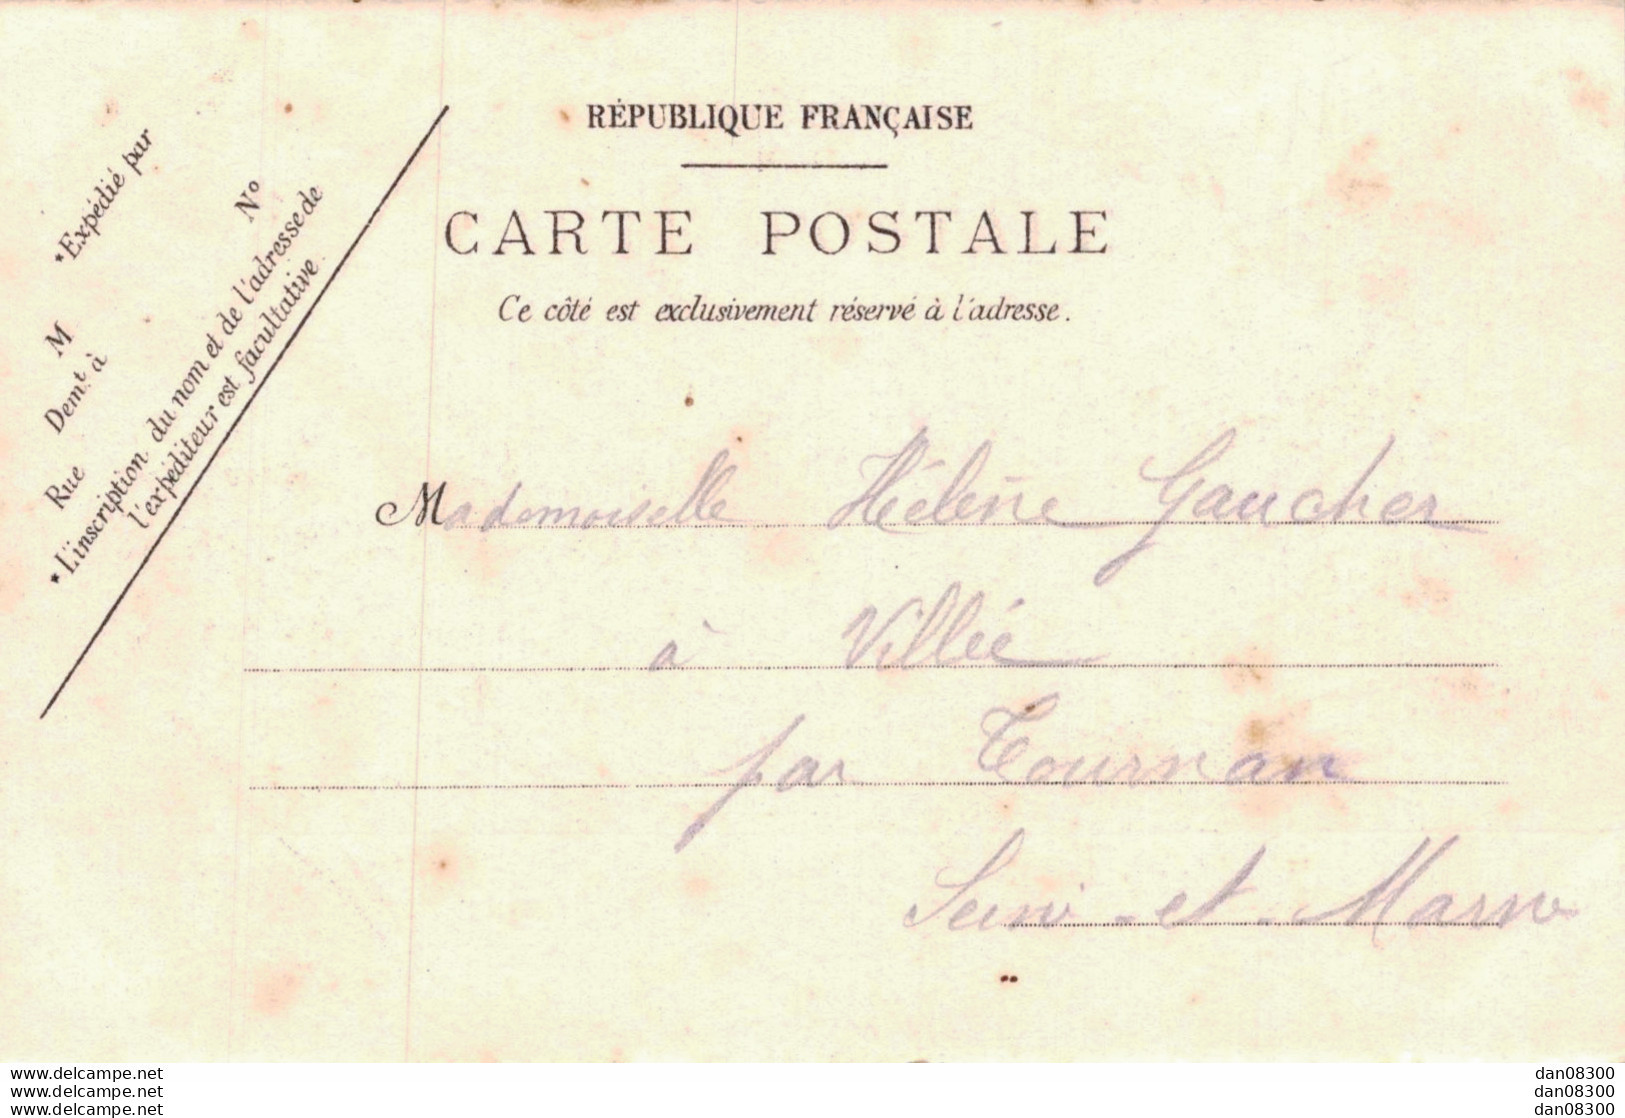 RÉPUBLIQUE FRANÇAISE
CARTE POSTALE
Ce côté est exclusivement réservé à l'adresse.
*Expédié par
M
Demt. à
Rue
No
*L'inscription du nom et de l'adresse de
l'expéditeur est facultative.
Mademoiselle Hélène Gaucher
à Villée
par Tournan
Seine-et-Marne
www.delcampe.net
www.delcampe.net
www.delcampe.net
dan08300
dan08300
dan08300